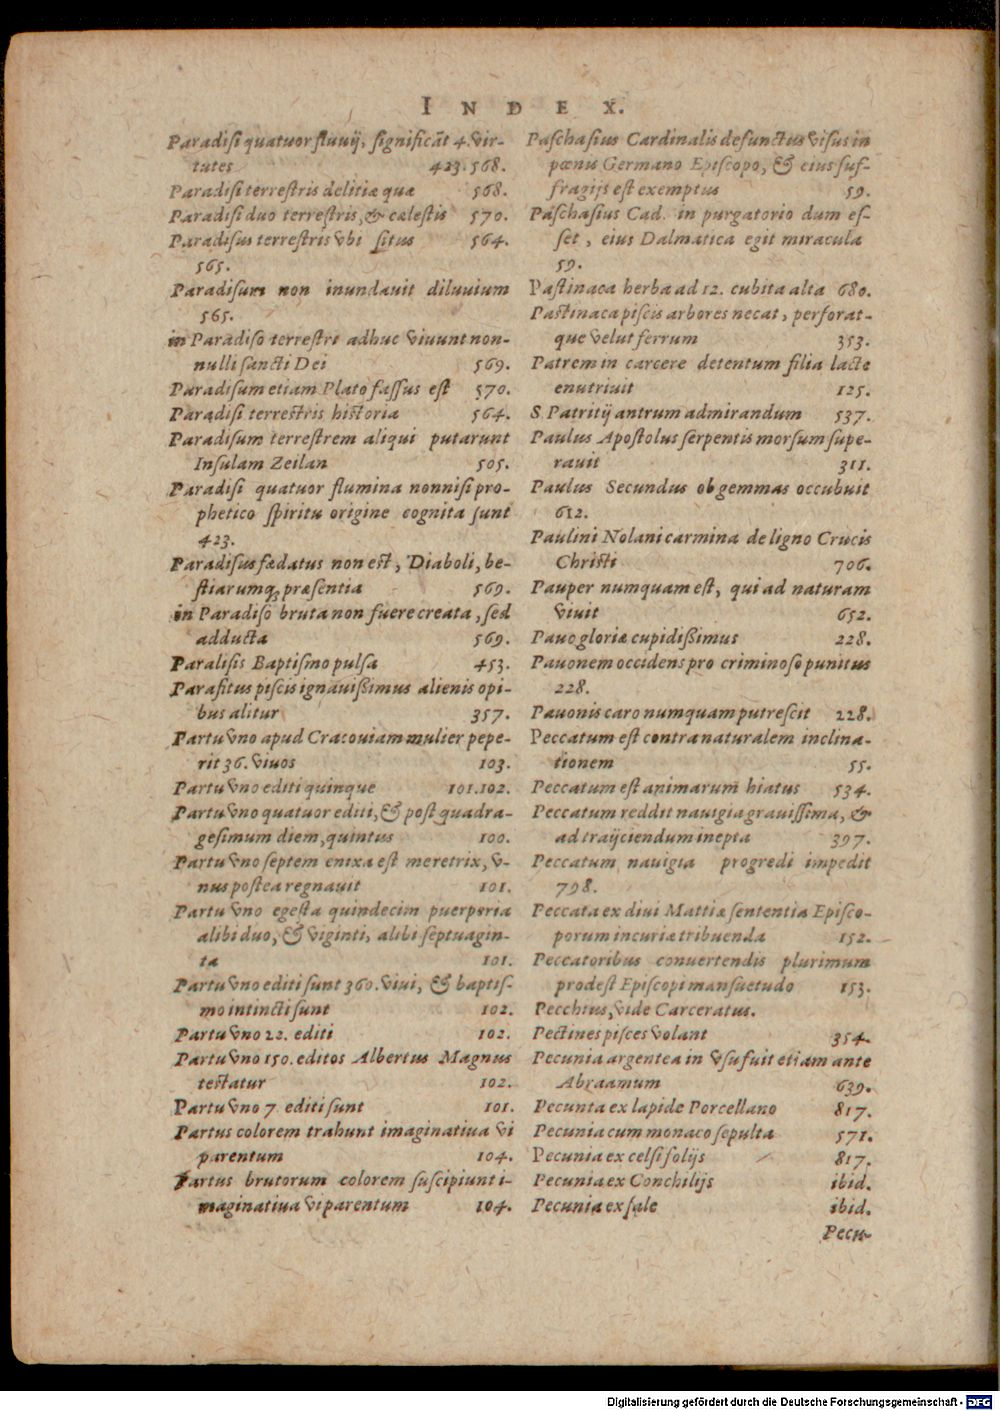 INDEX.
Paradisi quatuor fluuij, significāt 4. vir-
tutes 423. 568.
Paradisi terrestris delitiæ quæ 568.
Paradisi duo terrestris, & cælestis 570.
Paradisus terrestris vbi situs 564.
565.
Paradisum non inundauit diluuium
565.
in Paradiso terrestri adhuc viuunt non-
nulli sancti Dei 569.
Paradisum etiam Plato fassus est 570.
Paradisi terrestris historia 564.
Paradisum terrestrem aliqui putarunt
Insulam Zeilan 505.
Paradisi quatuor flumina nonnisi pro-
phetico spiritu origine cognita sunt
423.
Paradisus fœdatus non est, Diaboli, be-
stiarumq; præsentia 569.
in Paradiso bruta non fuere creata, sed
adducta 569.
Paralisis Baptismo pulsa 453.
Parasitus piscis ignauißimus alienis opi-
bus alitur 357.
Partu vno apud Cracouiam mulier pepe-
rit 36. viuos 103.
Partu vno editi quinque 101.102.
Partu vno quatuor editi, & post quadra-
gesimum diem, quintus 100.
Partu vno septem enixa est meretrix, v-
nus postea regnauit 101.
Partu vno egesta quindecim puerperia
alibi duo, & viginti, alibi septuagin-
ta 101.
Partu vno editi sunt 360. viui, & baptis-
mo intincti sunt 102.
Partu vno 22. editi 102.
Partu vno 150. editos Albertus Magnus
testatur 102.
Partu vno 7. editi sunt 101.
Partus colorem trahunt imaginatiua vi
parentum 104.
Partus brutorum colorem suscipiunt i-
maginatiua vi parentum 104.
Paschasius Cardinalis defunctus visus in
pœnis Germano Episcopo, & eius suf-
fragijs est exemptus 59.
Paschasius Cad. in purgatorio dum es-
set, eius Dalmatica egit miracula
59.
Pastinaca herba ad 12. cubita alta 680.
Pastinaca piscis arbores necat, perforat-
que velut ferrum 353.
Patrem in carcere detentum filia lacte
enutriuit 125.
S. Patritij antrum admirandum 537.
Paulus Apostolus serpentis morsum supe-
rauit 311.
Paulus Secundus ob gemmas occubuit
612.
Paulini Nolani carmina de ligno Crucis
Christi 706.
Pauper numquam est, qui ad naturam
viuit 652.
Pauo gloriæ cupidißimus 228.
Pauonem occidens pro criminoso punitus
228.
Pauonis caro numquam putrescit 228.
Peccatum est contra naturalem inclina-
tionem 55.
Peccatum est animarum hiatus 534.
Peccatum reddit nauigia grauissima, &
ad traijciendum inepta 397.
Peccatum nauigia progredi impedit
798.
Peccata ex diui Mattiæ sententia Episco-
porum incuriæ tribuenda 152.
Peccatoribus conuertendis plurimum
prodest Episcopi mansuetudo 153.
Pecchius, vide Carceratus.
Pectines pisces volant 354.
Pecunia argentea in vsu fuit etiam ante
Abraamum 639.
Pecunia ex lapide Porcellano 817.
Pecunia cum monaco sepulta 571.
Pecunia ex celsi folijs 817.
Pecunia ex Conchilijs ibid.
Pecunia ex sale ibid.
Pecu-
Digitalisierung gefördert durch die Deutsche Forschungsgemeinschaft - DFG